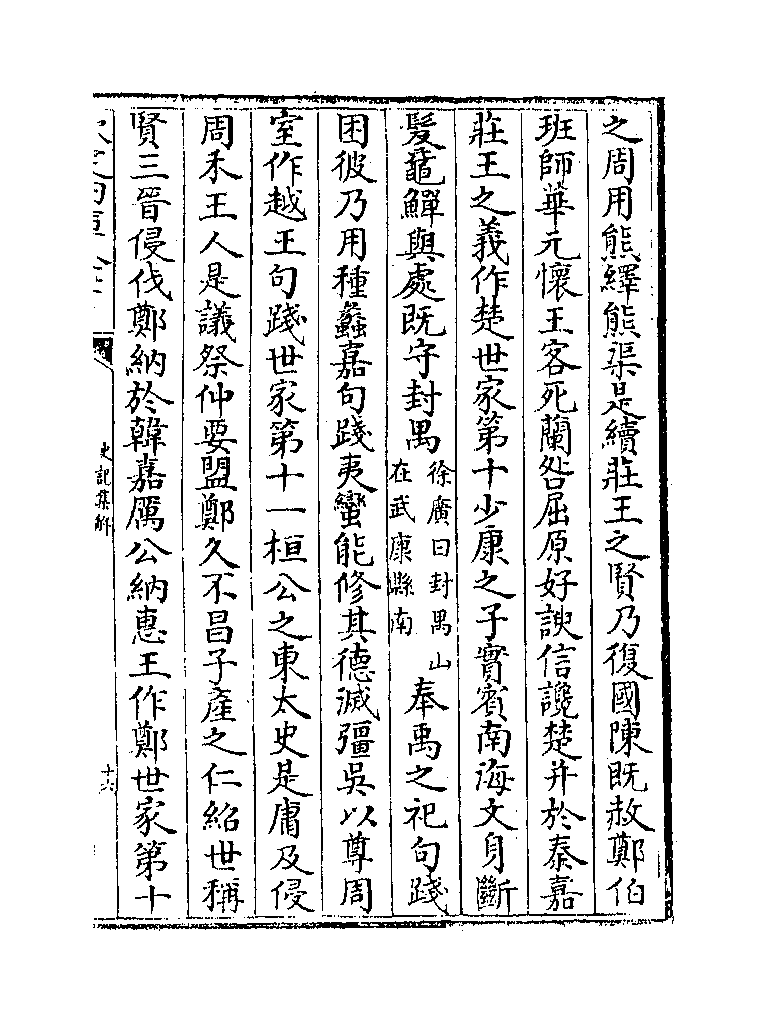 之周用熊繹熊渠是續莊王之賢乃復國陳既赦鄭伯
班師華元懷王客死蘭咎屈原好諛信讒楚并於秦嘉
莊王之義作楚世家第十少康之子實賓南海文身斷
髮黿鱓與處既守封禺
徐廣曰封禺山
在武康縣南
奉禹之祀句踐
困彼乃用種蠡嘉句踐夷蠻能修其德滅彊吳以尊周
室作越王句踐世家第十一桓公之東太史是庸及侵
周禾王人是議祭仲要盟鄭久不昌子產之仁紹世稱
賢三晉侵伐鄭納於韓嘉厲公納惠王作鄭世家第十
史記集解
十六